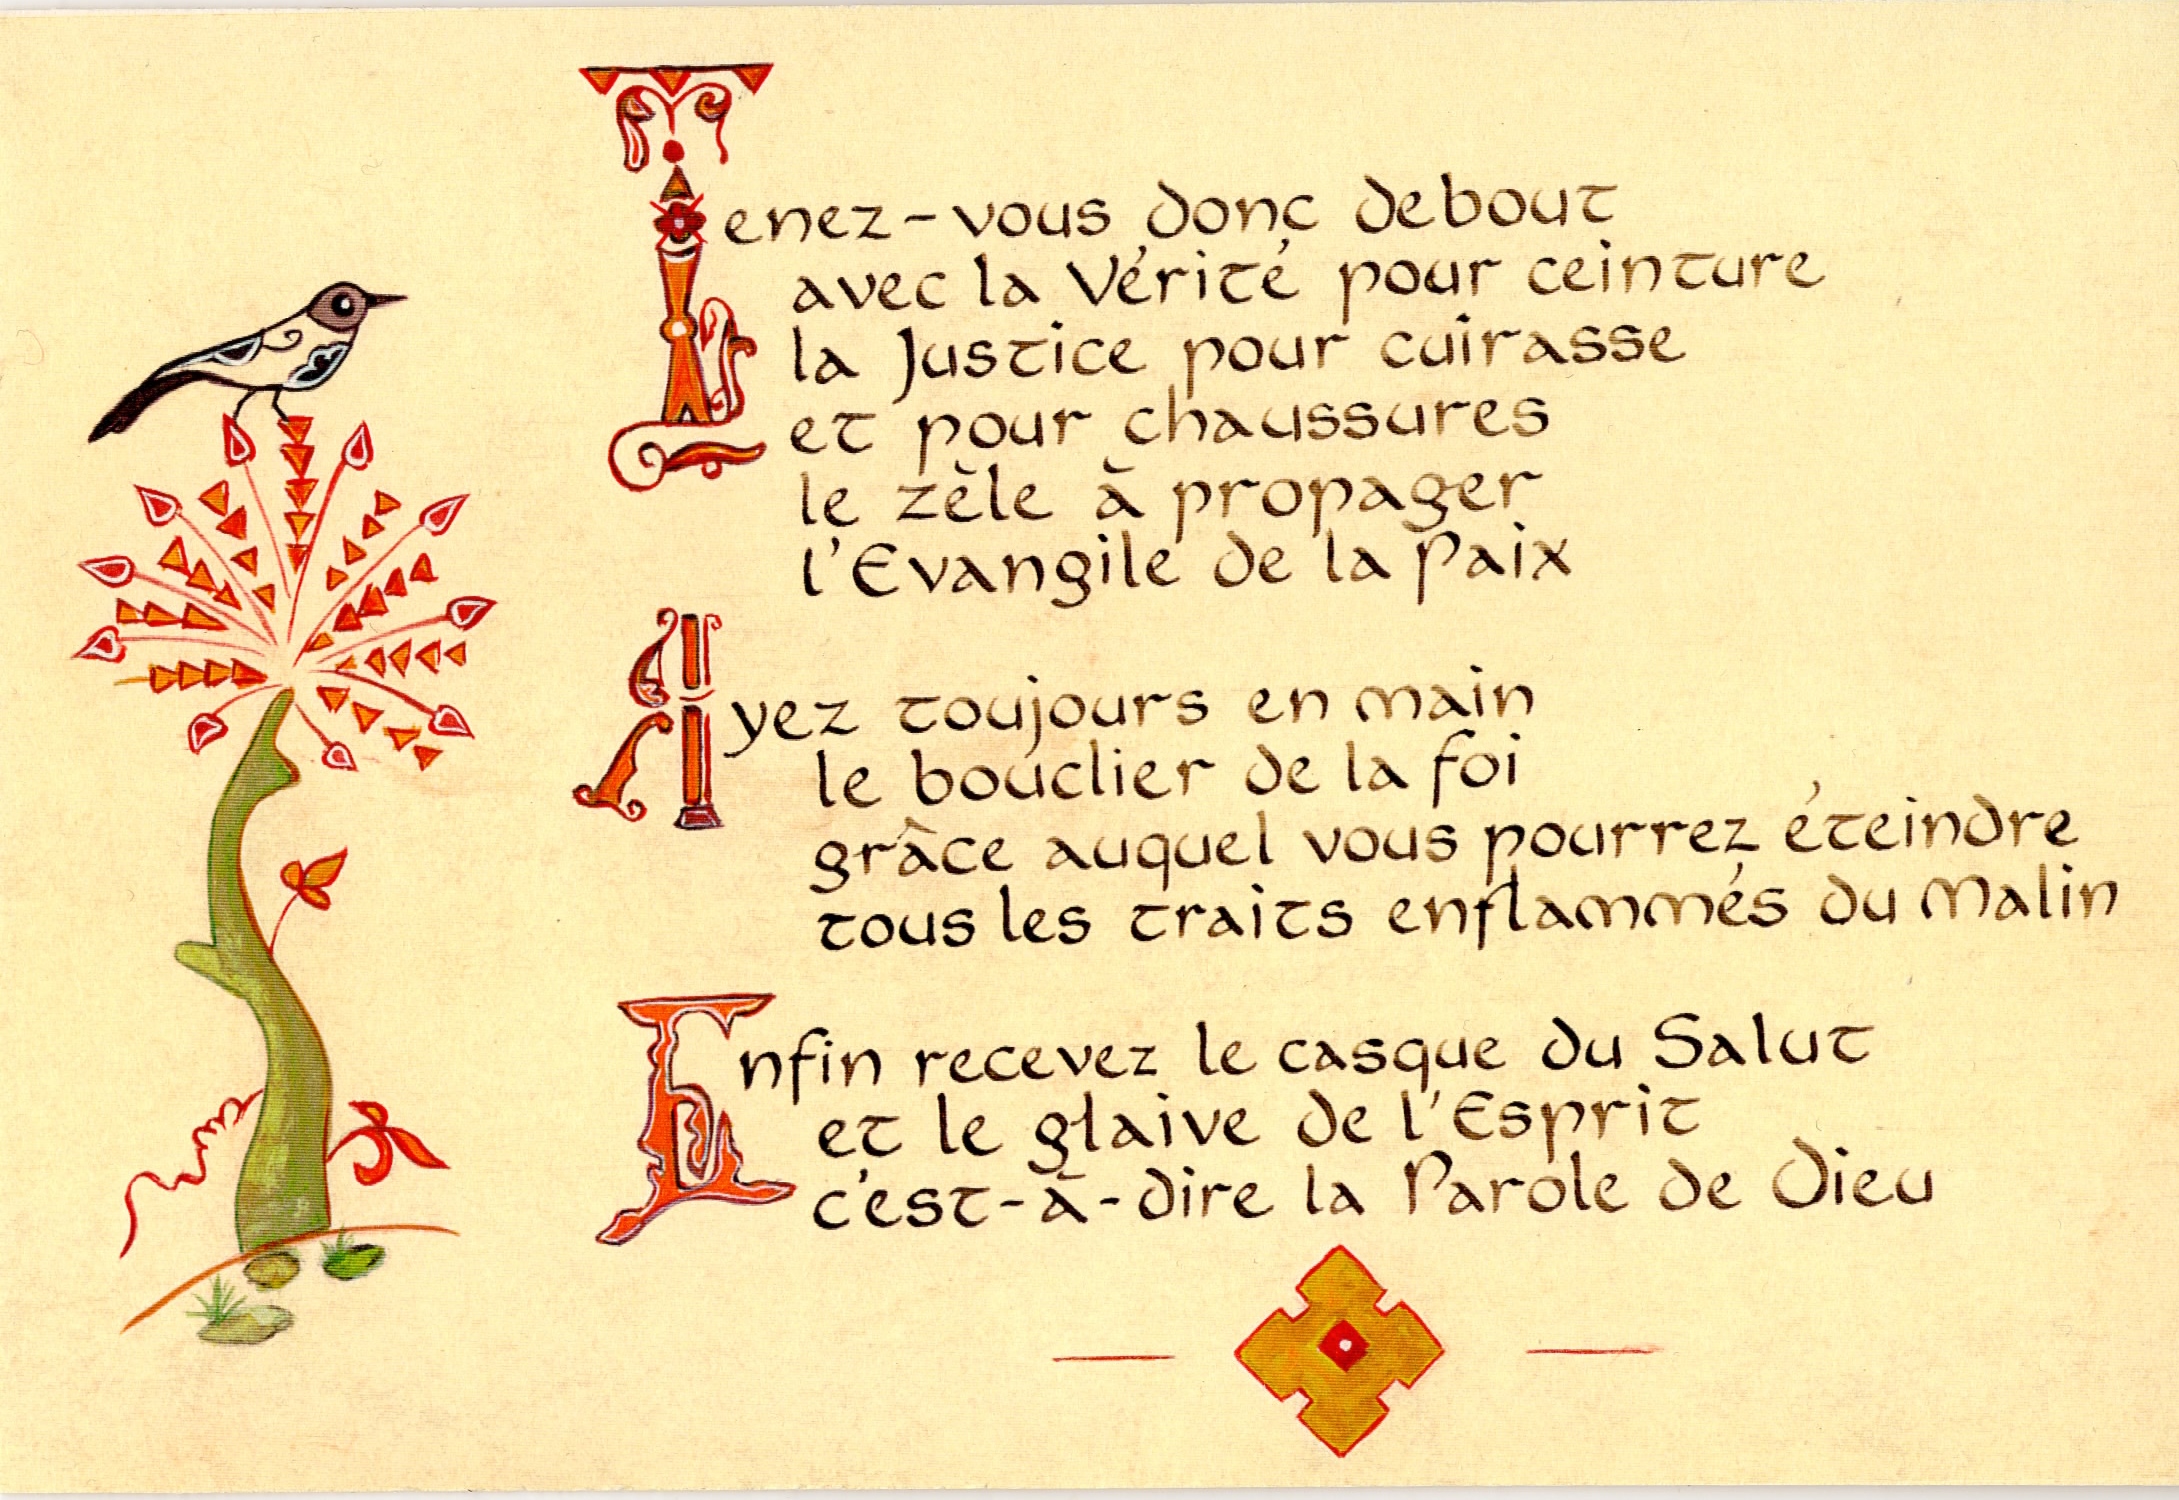 Tenez-vous donc debout
avec la Vérité pour ceinture
la Justice pour cuirasse
et pour chaussures
le zèle à propager
l'Evangile de la Paix
Ayez toujours en main
le bouclier de la foi
grâce auquel vous pourrez éteindre
tous les traits enflammés du Malin
Enfin recevez le casque du Salut
et le glaive de l'Esprit
c'est-à-dire la Parole de Dieu